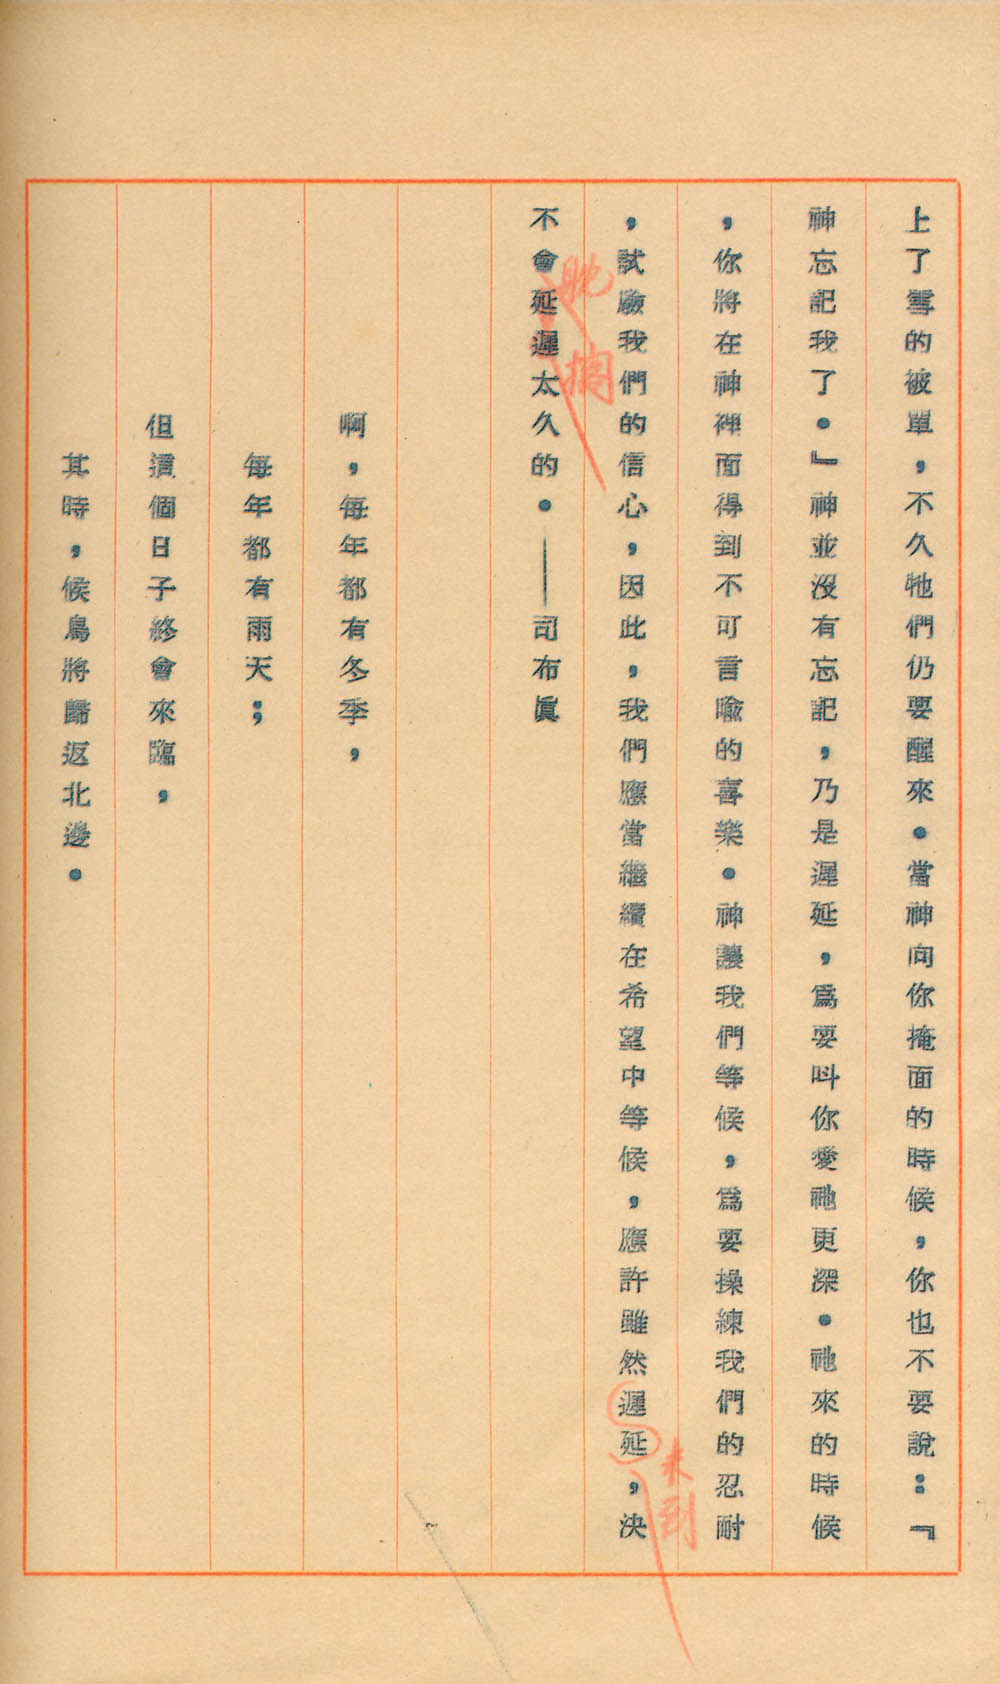 上了雪的被單，不久牠們仍要醒來。當神向你掩面的時候，你也不要說：『
神忘記我了。』神並沒有忘記，乃是遲延，爲要叫你愛祂更深。祂來的時候
，你將在神裡面得到不可言喻的喜樂。神讓我們等候，爲要操練我們的忍耐
，試驗我們的信心，因此，我們應當繼續在希望中等候，應許雖然遲延，決
未到
不會延遲太久的。——司布眞
啊，每年都有冬季，
每年都有雨天；
但這個日子終會來臨，
其時，候鳥將歸返北邊。